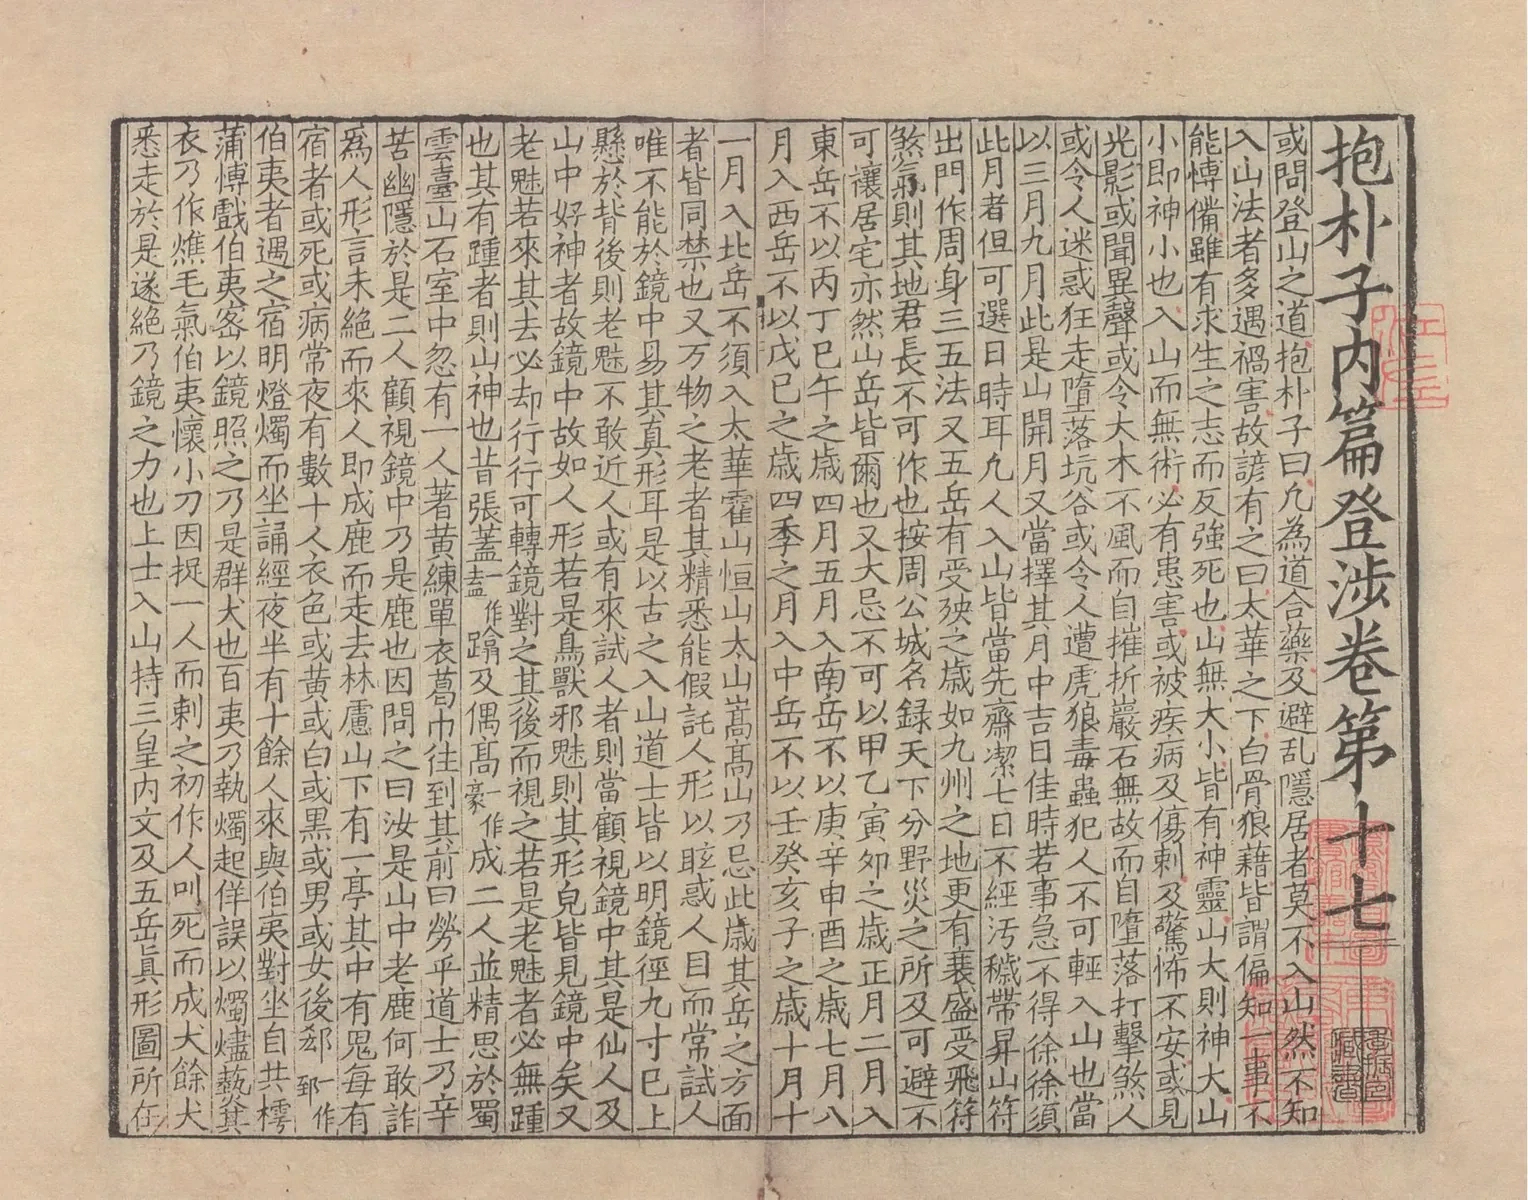 抱朴子内篇登涉卷第十七
或問登山之道抱朴子曰凢為道合藥及避乱隱居者莫不入山然不知
入山法者多遇禍害故諺有之曰太華之下白骨狼藉皆謂偏知一事不
能愽備雖有求生之志而反強死也山無大小皆有神靈山大則神大山
小即神小也入山而無術必有患害或被疾病及傷刺及驚怖不安或見
光影或聞異聲或令大木不風而自摧折巖石無故而自墮落打擊煞人
或令人迷惑狂走墮落坑谷或令人遭虎狼毒蟲犯人不可輕入山也當
以三月九月此是山開月又當擇其月中吉日佳時若事急不得徐徐須
此月者但可選日時耳凢人入山皆當先齋潔七日不經汚穢帶昇山符
出門作周身三五法又五岳有受殃之歲如九州之地更有衰盛受飛符
煞氣則其地君長不可作也按周公城名録天下分野災之所及可避不
可禳居宅亦然山岳皆爾也又大忌不可以甲乙寅卯之歲正月二月入
東岳不以丙丁巳午之歲四月五月入南岳不以庚辛申酉之歲七月八
月入西岳不以戊巳之歲四季之月入中岳不以壬癸亥子之歲十月十
一月入北岳不須入太華霍山恒山太山嵩髙山乃忌此歲其岳之方面
者皆同禁也又万物之老者其精悉能假託人形以眩惑人目而常試人
唯不能於鏡中易其真形耳是以古之入山道士皆以明鏡徑九寸巳上
懸於背後則老魅不敢近人或有來試人者則當顧視鏡中其是仙人及
山中好神者故鏡中故如人形若是鳥獸邪魅則其形皃皆見鏡中矣又
老魅若來其去必却行行可轉鏡對之其後而視之若是老魅者必無踵
也其有踵者則山神也昔張蓋一作盍蹹及偶髙一作豪成二人並精思於蜀
雲臺山石室中忽有一人著黄練單衣葛巾往到其前曰勞乎道士乃辛
苦幽隱於是二人顧視鏡中乃是鹿也因問之曰汝是山中老鹿何敢詐
為人形言未絶而來人即成鹿而走去林慮山下有一亭其中有鬼每有
宿者或死或病常夜有數十人衣色或黄或白或黒或男或女後郄一作郅
伯夷者遇之宿明燈燭而坐誦經夜半有十餘人來與伯夷對坐自共樗
蒲愽戲伯夷宻以鏡照之乃是群犬也百夷乃執燭起佯誤以燭燼爇其
衣乃作燋毛氣伯夷懷小刀因捉一人而刺之初作人叫死而成犬餘犬
悉走於是遂絶乃鏡之力也上士入山持三皇内文及五岳眞形圖所在